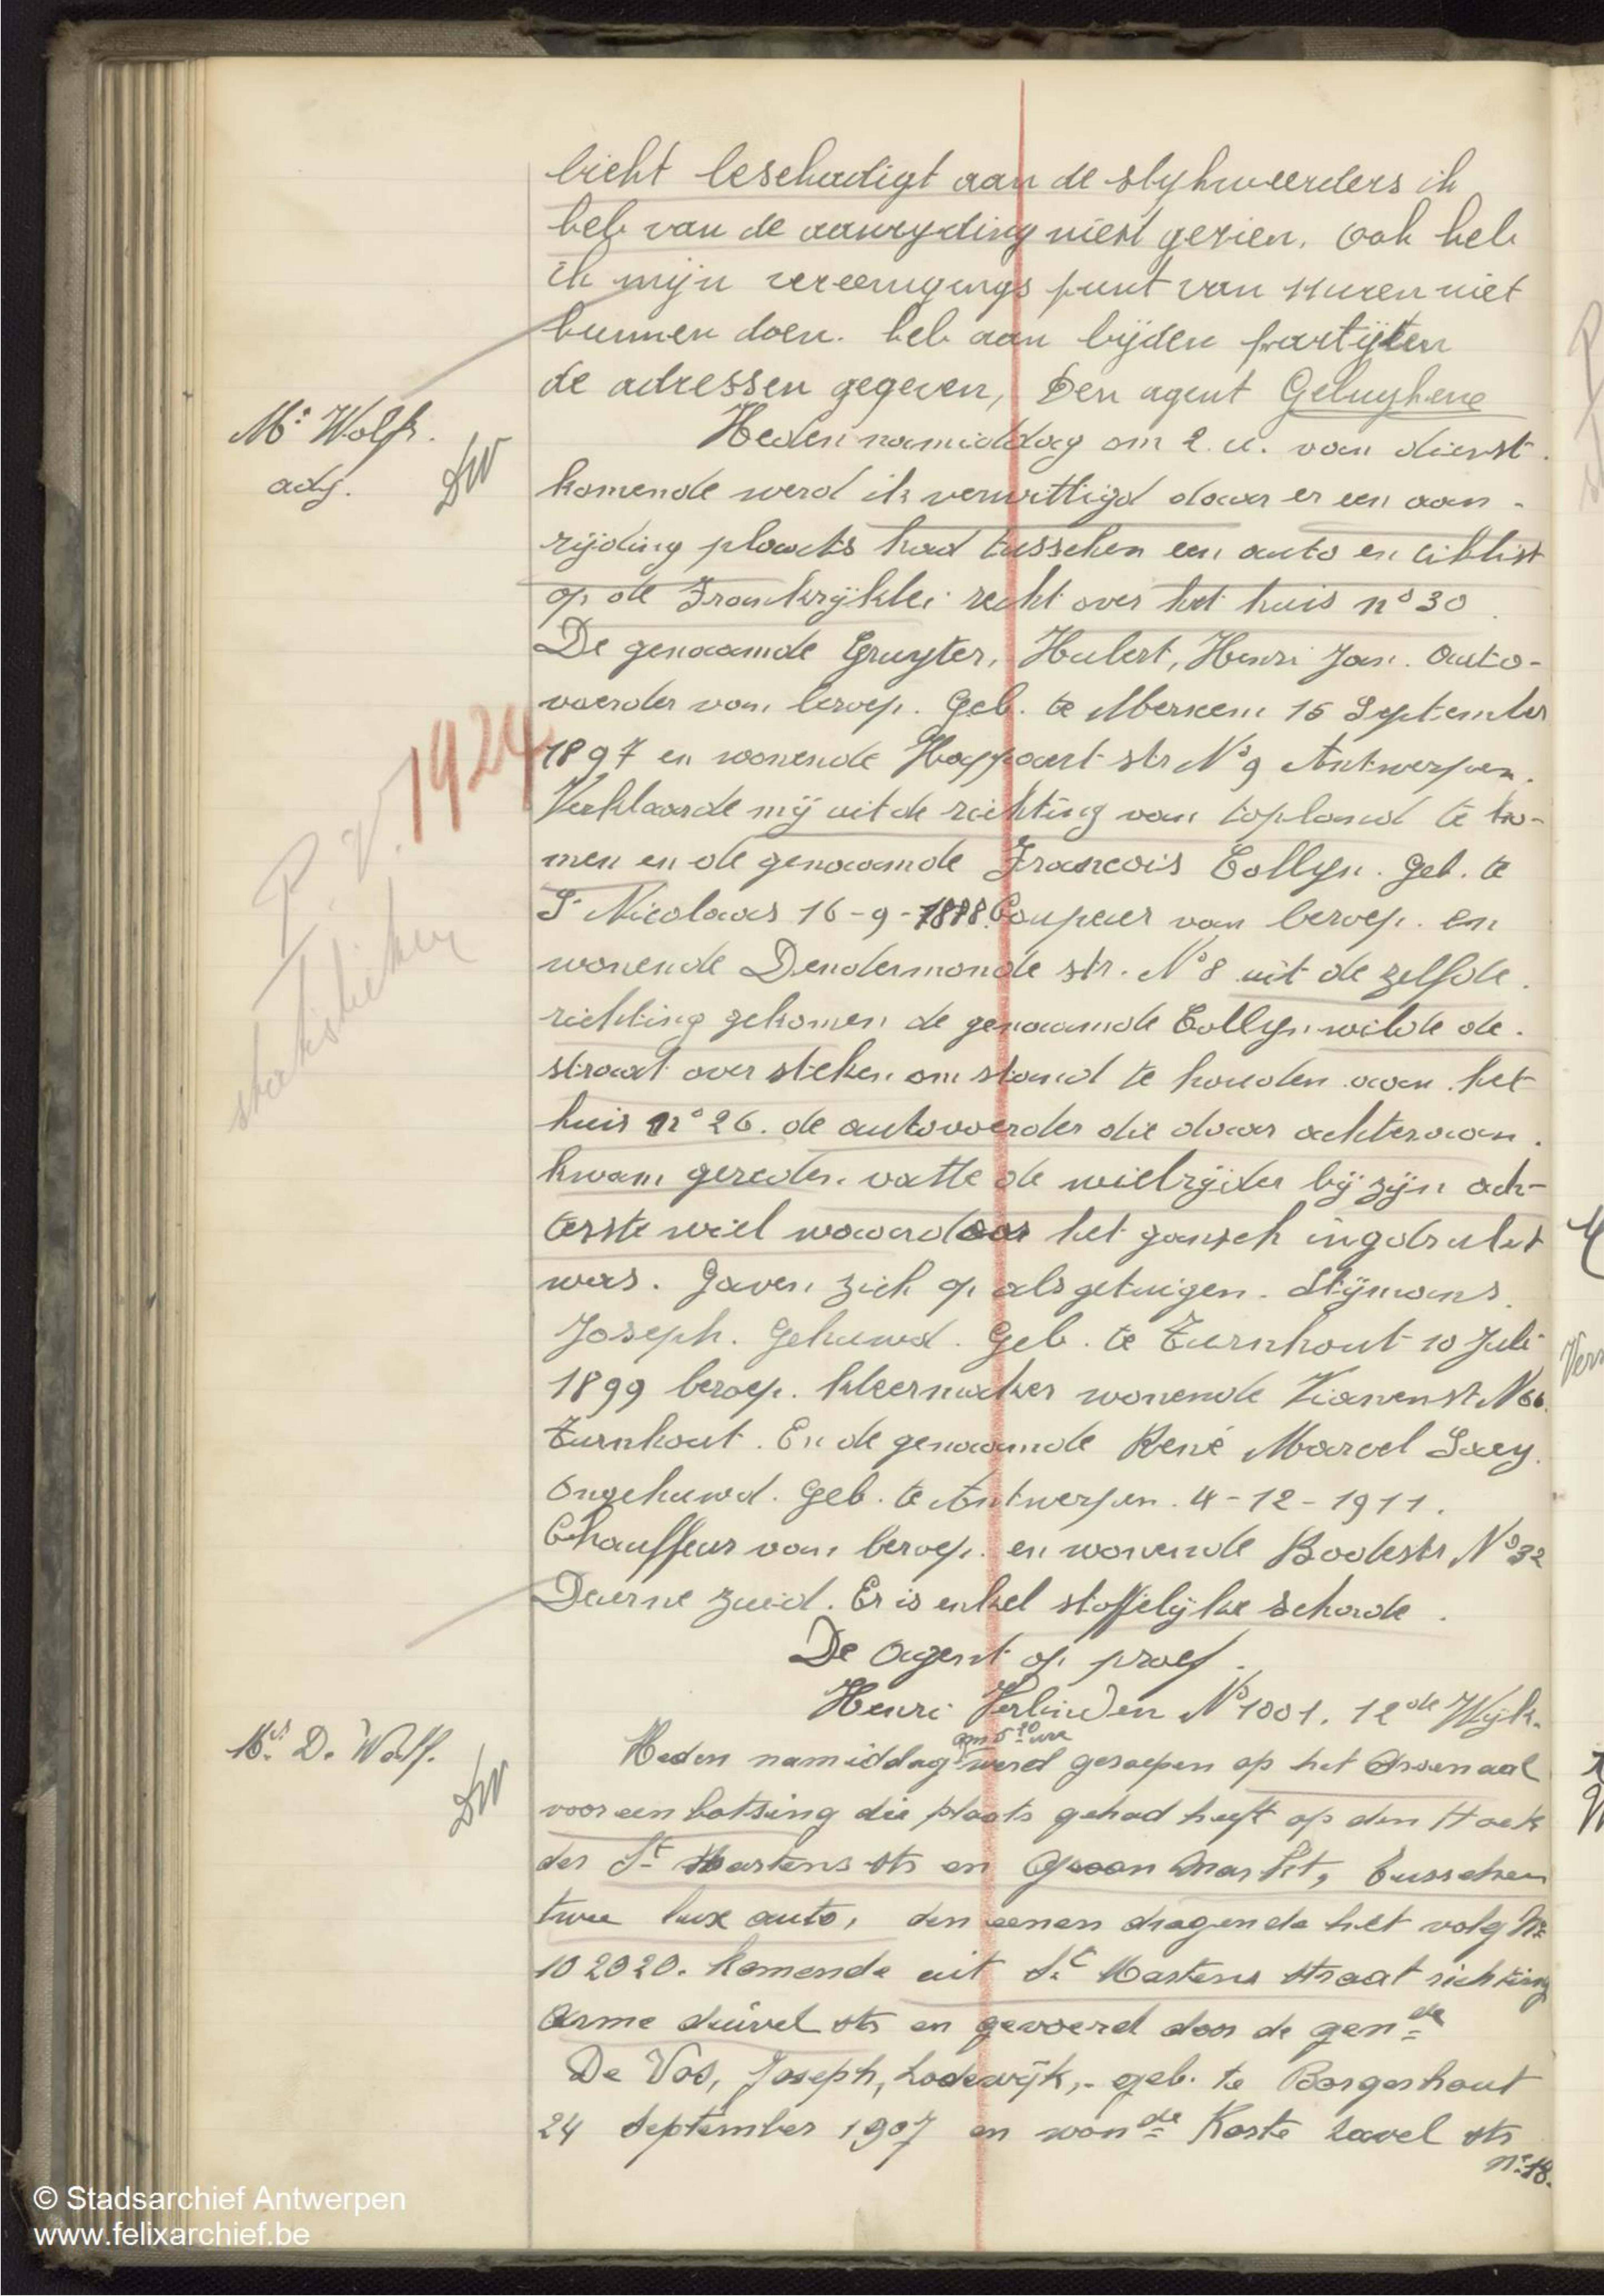 licht beschadigt aan de slykweerders ik
heb van de aanryding niest gezien. Ook heb
ik mijn vereenigings punt van 11 uren niet
kunnen doen. heb aan bijden partijten
de adressen gegeven, Den agent Geluykene
Mr Wolfs.
adj.
DW
Heden namiddag om 2. u. van dienst.
komende werd ik verwittigd daar er een aan-
rijding plaacts had tusschen een auto en ciklist
op de Frankrijklei recht over het huis no 30.
De genaamde Gruyter, Hubert, Henri Jan. Auto-
voerder van beroep. Geb. te Merxem 15 September
1897 en wonende Hoppaert str No 9 Antwerpen.
P. V. 1924
statistieken
Verklaarde mij uit de richting van Copland te ko-
men en de genaamde Francois Collyn. Geb. te
St Nicolaas 16-9-1888. Coupeur van beroep. en
wonende Dendermonde str. No 8 uit de zelfde.
richting gekomen de genaamde Collyn wilde de.
straat over steken om stand te houden aan het
huis no 26. de autovoerder die daar achteraan.
kwam gereden. vatte de wielrijder bij zijn ach-
terste wiel waardoor het gansch ingedrukt
was. Gaven zich op als getuigen. Stijmans.
Joseph. Gehuwd. Geb. te Turnhout 10 Juli
1899 beroep. kleermaker wonende No 66.
Turnhout. En de genaamde René Marcel Saey.
Ongehuwd. Geb. te Antwerpen. 4-12-1911.
Chauffeur van beroep. en wonende Bodestr No 32
Deurne zuid. Er is enkel stoffelijke schade.
De Agent op proef.
Henri Verlinden No 1001. 12de Wijk.
Mr D. Wolf.
DW
om 5 10 ure
Heden namiddag werd geroepen op het Arsenaal
voor een botsing die plaats gehad heeft op den Hoek
der St Martens str en Graan Markt, tusschen
twee lux auto, den eenen dragende het volg No
102020. komende uit St Martens straat richting
Arme duivel str en gevoerd door de gende
De Vos, Joseph, Lodewijk,. geb. te Borgerhout
24 September 1907 en wonde Korte Zavel str
no 18.
© Stadsarchief Antwerpen
www.felixarchief.be